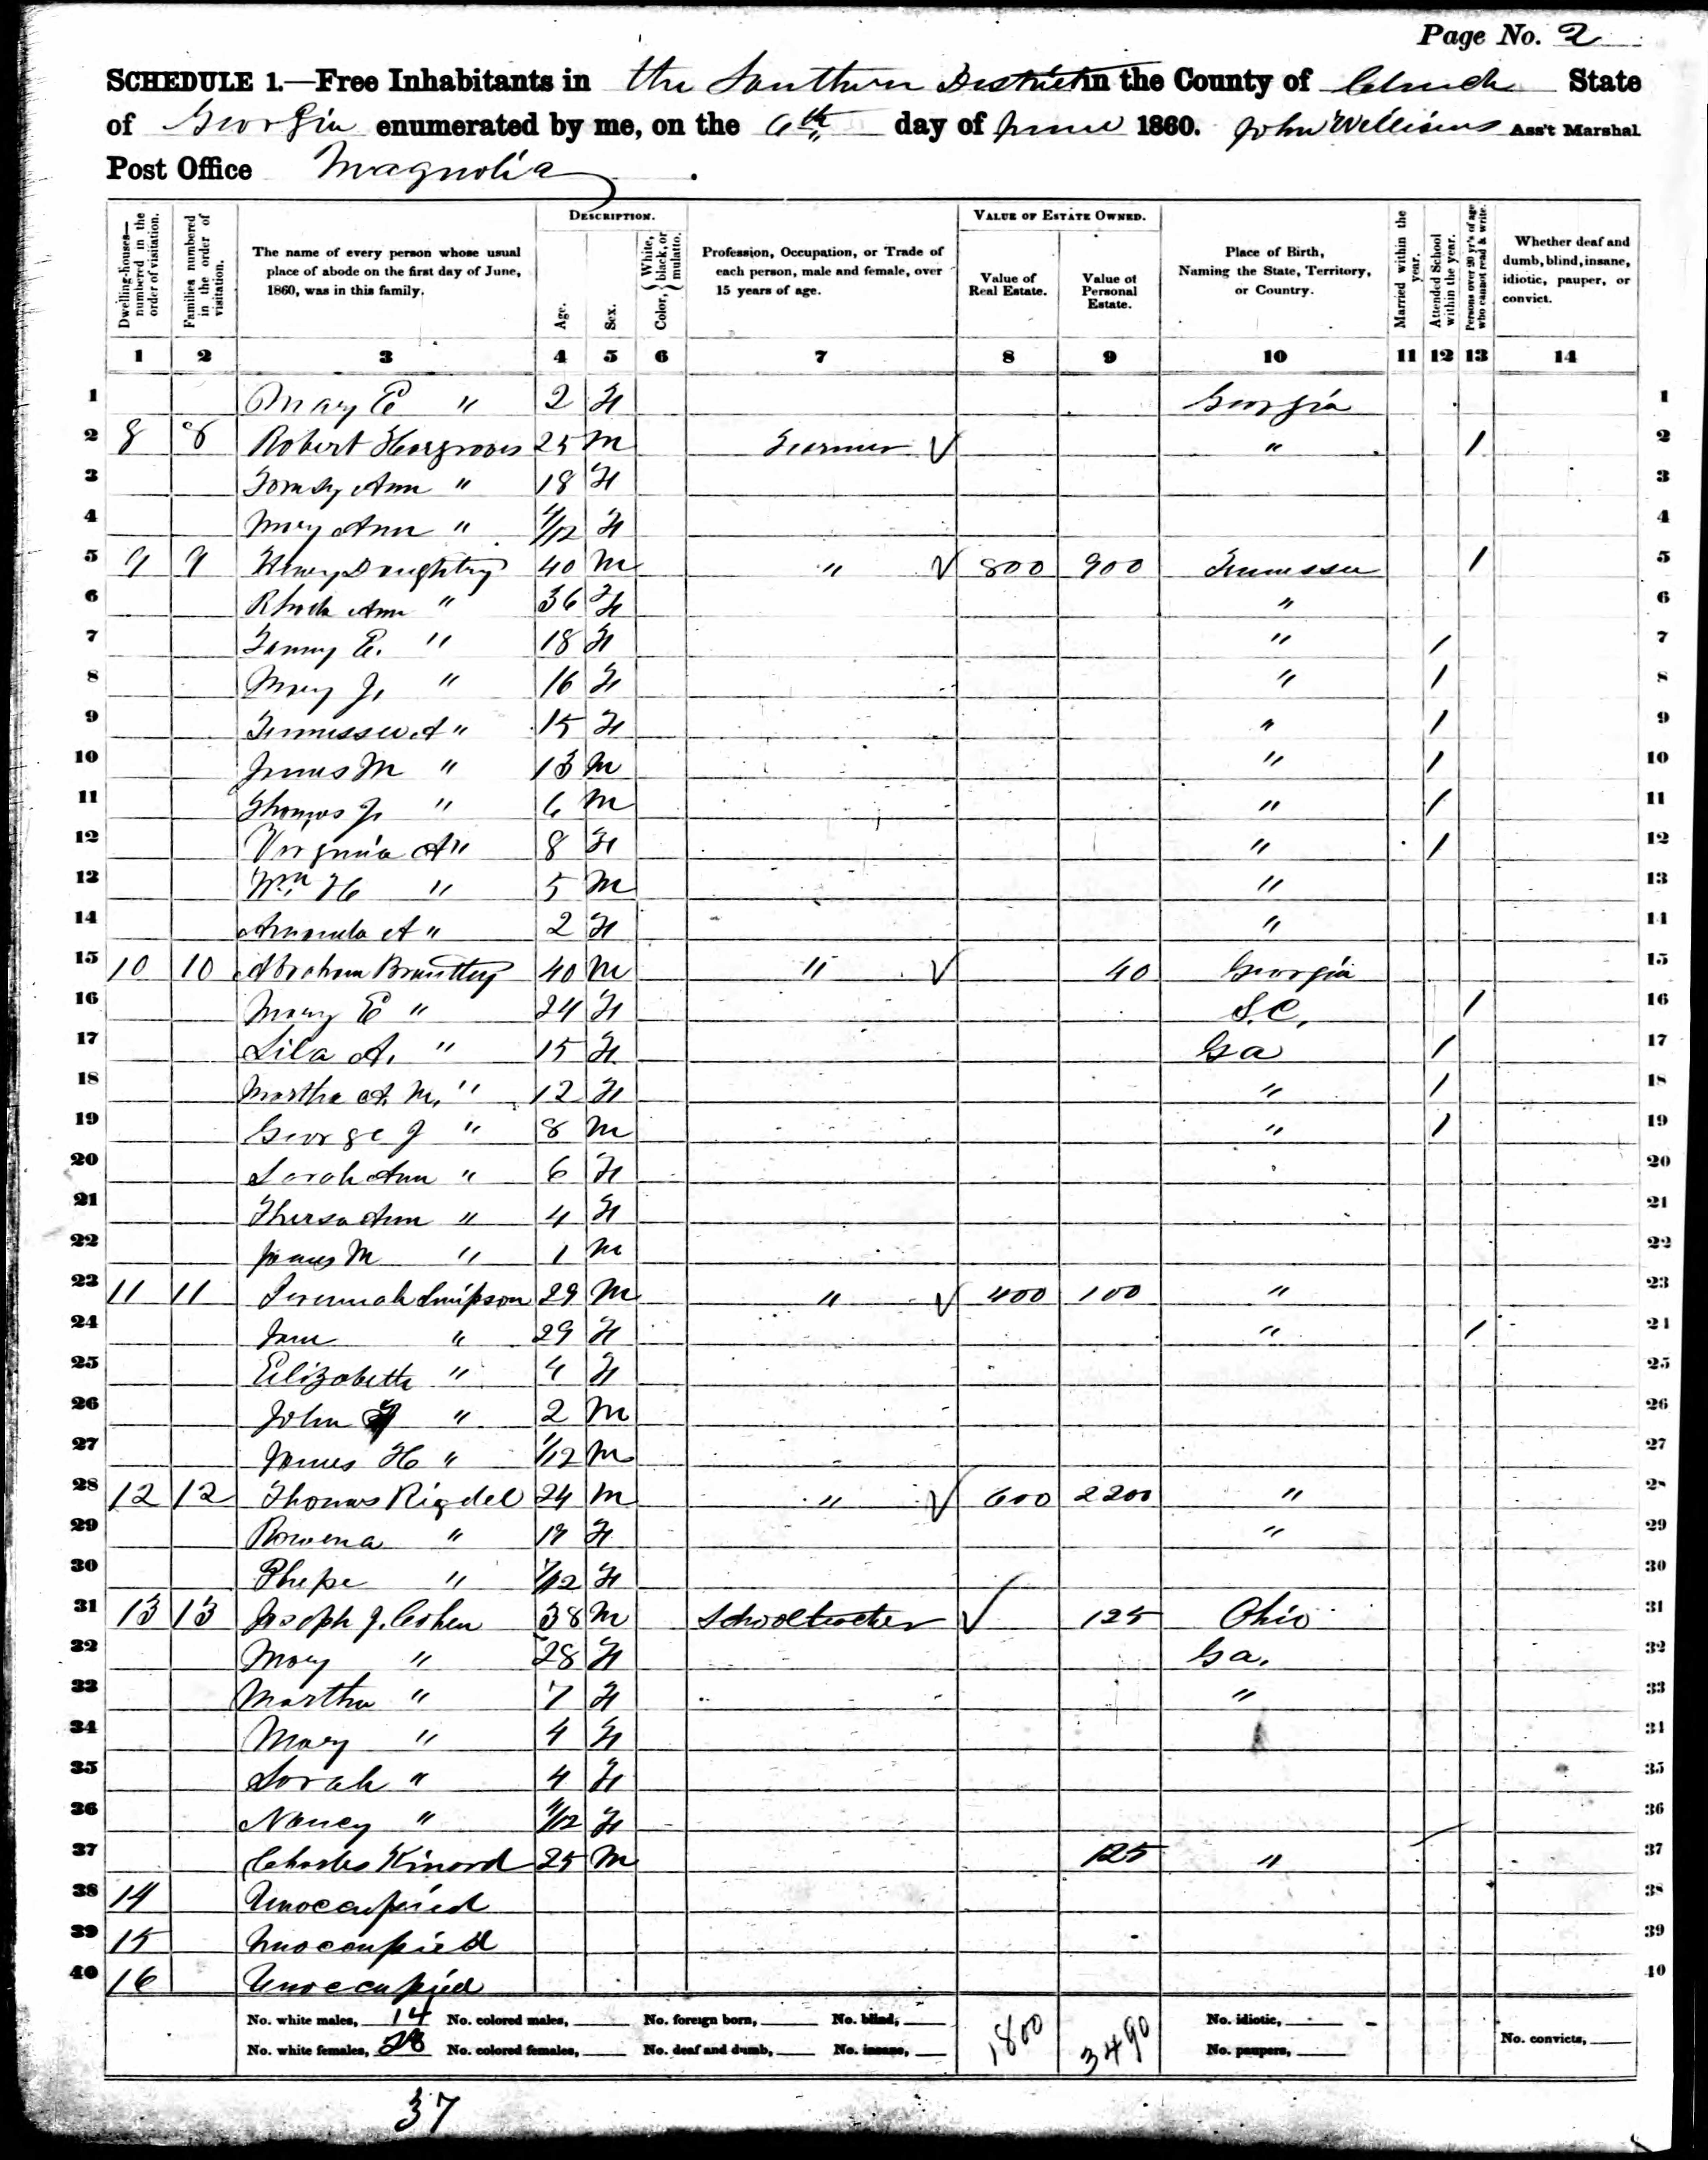 Page No. 2
SCHEDULE 1.—Free Inhabitants in the Southern District in the County of Clinch State
of Georgia enumerated by me, on the 6th day of June 1860. John Williams Ass't Marshal
Post Office Magnolia
Dwelling-houses—numbered in the order of visitation. Families numbered in the order of visitation. The name of every person whose usual place of abode on the first day of June, 1860, was in this family. DESCRIPTION. Age. Sex. Color, { White, black, or mulatto. Profession, Occupation, or Trade of each person, male and female, over 15 years of age. VALUE OF ESTATE OWNED. Value of Real Estate. Value of Personal Estate. Place of Birth, Naming the State, Territory, or Country. Married within the year. Attended School within the year. Persons over 20 yr's of age who cannot read & write. Whether deaf and dumb, blind, insane, idiotic, pauper, or convict.
1 2 3 4 5 6 7 8 9 10 11 12 13 14
1 Mary E " 2 F Georgia 1
2 8 8 Robert Hargroves 25 M Farmer ✓ " / 2
3 Ann " 18 F 3
4 Mary Ann " /12 F 4
5 9 9 Henry Doughtry 40 M " ✓ 800 900 Tennessee / 5
6 Rhoda Ann " 36 F " 6
7 Fanny E. " 18 F " / 7
8 Mary J. " 16 F " / 8
9 Tennessee A " 15 F " / 9
10 James M " 13 M " / 10
11 Thomas J. " 6 M " / 11
12 Virginia A " 8 F " / 12
13 Wm H " 5 M " 13
14 Amanda A " 2 F " 14
15 10 10 Abraham Brantley 40 M " ✓ 40 Georgia 15
16 Mary E " 24 F S.C. / 16
17 Lila A. " 15 F Ga / 17
18 Martha A. M. " 12 F " / 18
19 George J " 8 M " / 19
20 Sarah Ann " 6 F 20
21 Thersa Ann " 4 F 21
22 James M " 1 M 22
23 11 11 Jeremiah Simpson 29 M " ✓ 400 100 " 23
24 Jane " 29 F " / 24
25 Elizabeth " 4 F 25
26 John " 2 M 26
27 James H " 1/12 M 27
28 12 12 Thomas Rigdel 24 M " ✓ 600 2200 " 28
29 Rowena " F " 29
30 Phepe " /12 F 30
31 13 13 Joseph J. Cohen 38 M Schoolteacher ✓ 125 Ohio 31
32 Mary " 28 F Ga. 32
33 Martha " 7 F " 33
34 Mary " 4 F 34
35 Sarah " 4 F 35
36 Nancy " /12 F 36
37 Charles Kinard 25 M 125 " 37
38 14 Unoccupied 38
39 15 Unoccupied 39
40 16 Unoccupied 40
No. white males, 14 No. colored males, No. foreign born, No. blind, 1800 3490 No. idiotic,
No. white females, No. colored females, No. deaf and dumb, No. insane, No. paupers, No. convicts,
37